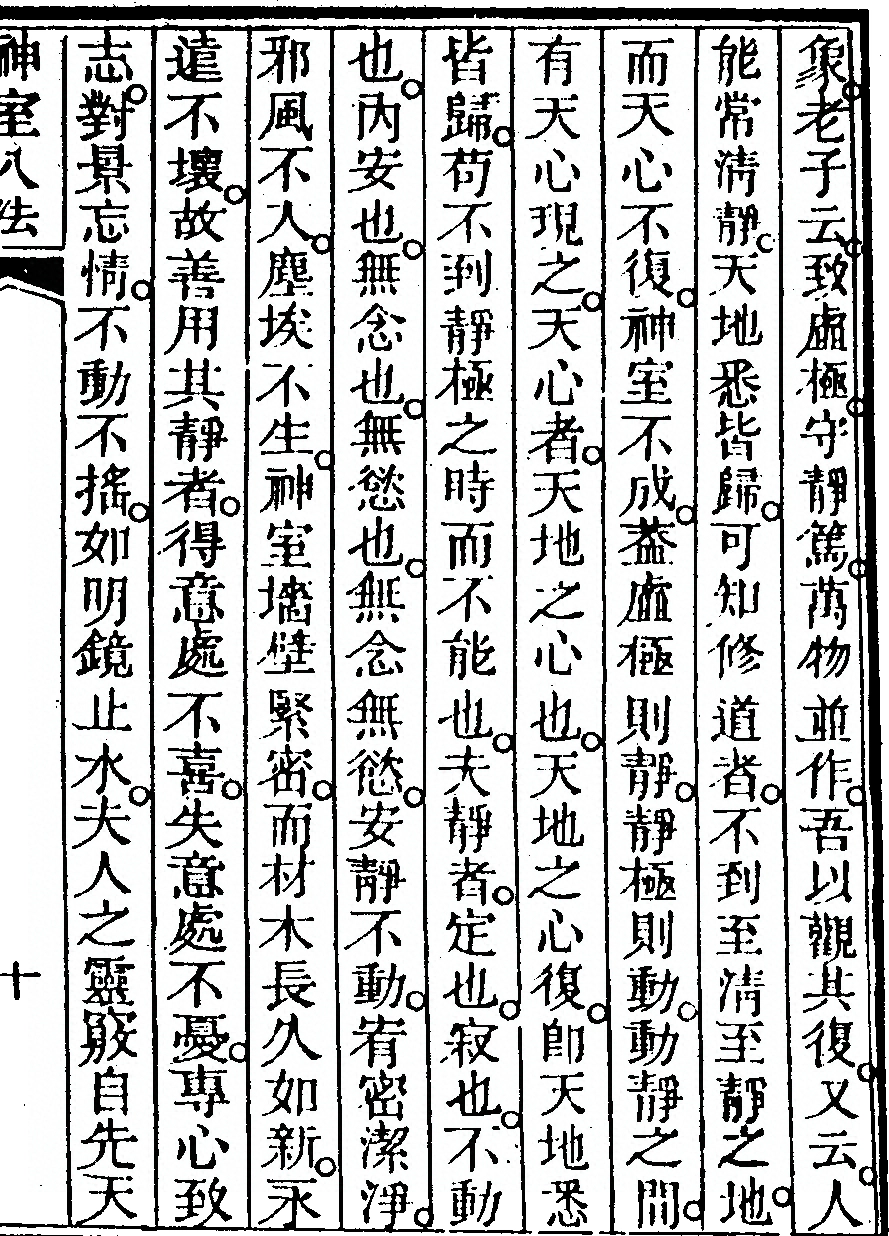 象老子云致虛極守靜篤萬物並作吾以觀其復又云人
能常淸靜天地悉皆歸可知修道者不到至淸至靜之地
而天心不復神室不成蓋虛極則靜靜極則動動靜之間
有天心現之天心者天地之心也天地之心復卽天地悉
皆歸苟不到靜極之時而不能也夫靜者定也寂也不動
也內安也無念也無慾也無念無慾安靜不動宥密潔淨
邪風不入塵埃不生神室墻壁緊密而材木長久如新永
遠不壞故善用其靜者得意處不喜失意處不憂專心致
志對景忘情不動不搖如明鏡止水夫人之靈竅自先天
神室八法
十